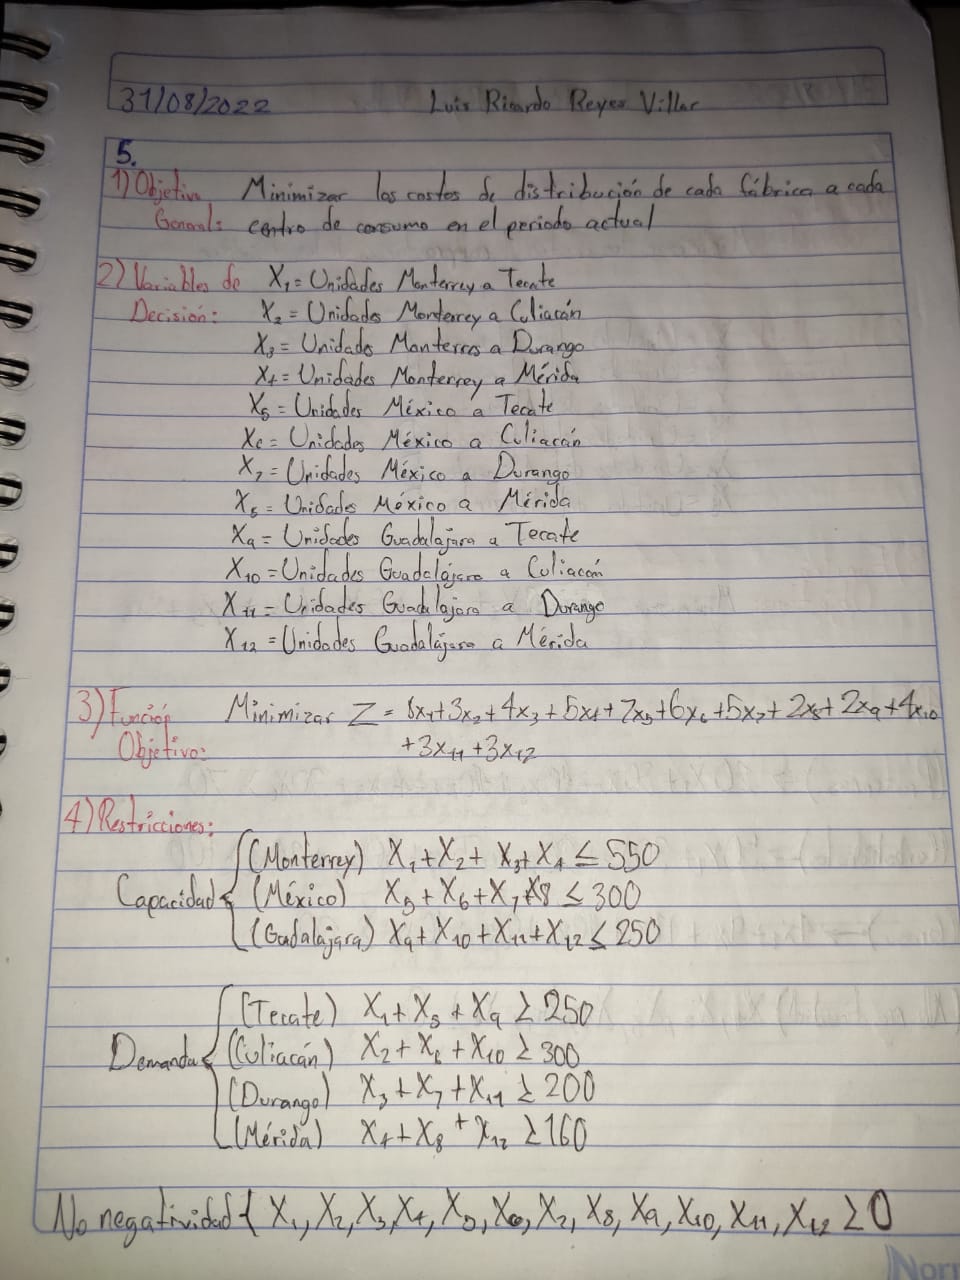 31/08/2022 Luis Ricardo Reyes Villar
5.
1) Objetivo Minimizar los costos de distribución de cada fábrica a cada
General: centro de consumo en el periodo actual
2) Variables de X₁ = Unidades Monterrey a Tecate
Decisión: X₂ = Unidades Monterrey a Culiacán
X₃ = Unidades Monterres a Durango
X₄ = Unidades Monterrey a Mérida
X₅ = Unidades México a Tecate
X₆ = Unidades México a Culiacán
X₇ = Unidades México a Durango
X₈ = Unidades México a Mérida
X₉ = Unidades Guadalajara a Tecate
X₁₀ = Unidades Guadalajara a Culiacán
X₁₁ = Unidades Guadalajara a Durango
X₁₂ = Unidades Guadalájara a Mérida
3) Función Minimizar Z = 8x₁+3x₂+4x₃+5x₄+7x₅+6x₆+5x₇+2x₈+2x₉+4x₁₀
Objetivo: +3x₁₁+3x₁₂
4) Restricciones:
(Monterrey) X₁+X₂+X₃+X₄ ≤ 550
Capacidad { (México) X₅+X₆+X₇+X8 ≤ 300
(Gadalajara) X₉+X₁₀+X₁₁+X₁₂ ≤ 250
(Tecate) X₁+X₅+X₉ ≥ 250
Demanda { (Culiacán) X₂+X₆+X₁₀ ≥ 300
(Durango) X₃+X₇+X₁₁ ≥ 200
(Mérida) X₄+X₈+X₁₂ ≥ 160
No negatividad { X₁, X₂, X₃, X₄, X₅, X₆, X₇, X₈, X₉, X₁₀, X₁₁, X₁₂ ≥ 0